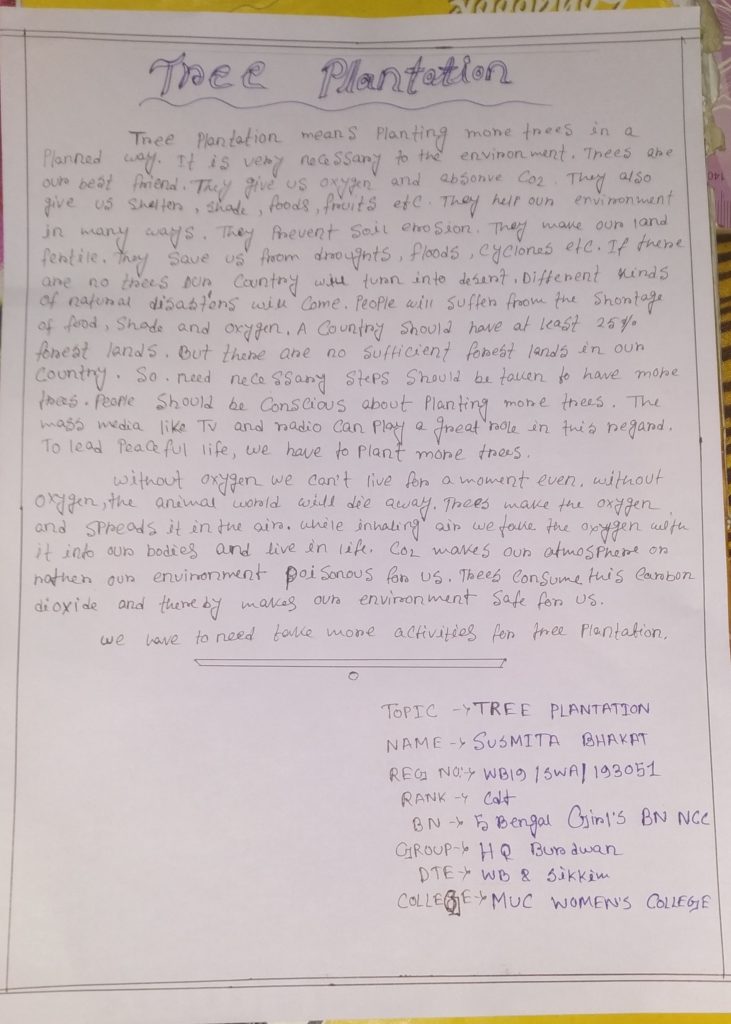 Tree Plantation
Tree Plantation means Planting more trees in a
Planned way. It is very necessary to the environment. Trees are
our best friend. They give us oxygen and absorve CO2. They also
give us shelter, shade, foods, fruits etc. They help our environment
in many ways. They Prevent Soil erosion. They make our land
fertile. They save us from droughts, floods, cyclones etc. If there
are no trees our Country will turn into desert. Different kinds
of natural disasters will Come. People will suffer from the shortage
of food, shade and oxygen. A Country should have at least 25%
forest lands. But there are no sufficient forest lands in our
Country. So need necessary steps should be taken to have more
trees. People should be Conscious about Planting more trees. The
mass media like TV and radio Can Play a great role in this regard.
To lead Peaceful life, we have to Plant more trees.
without oxygen we can't live for a moment even. without
oxygen, the animal world will die away. Trees make the oxygen
and spreads it in the air. while inhaling air we take the oxygen with
it into our bodies and live in life. CO2 makes our atmosphere or
rather our environment poisonous for us. Trees Consume this Carbon
dioxide and thereby makes our environment safe for us.
we have to need take more activities for tree Plantation.
TOPIC → TREE PLANTATION
NAME → SUSMITA BHAKAT
REG NO → WB19/SWA/193051
RANK → Cdt
BN → 5 Bengal Girl's BN NCC
GROUP → HQ Burdwan
DTE → WB & Sikkim
COLLEGE → MUC WOMEN'S COLLEGE